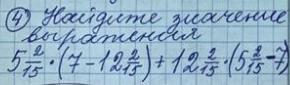 ④ Найдите значение
выражения
5 2/15 · (7 - 12 2/15) + 12 2/15 · (5 2/15 - 7)